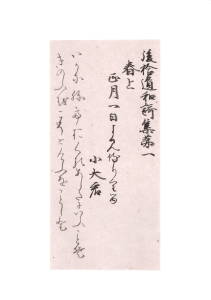 後拾遺和歌集第一
春上
正月一日よみ侍りける
小大君
いかにねておくるあしたにいふことそ
きのふをこそとけふをことしと